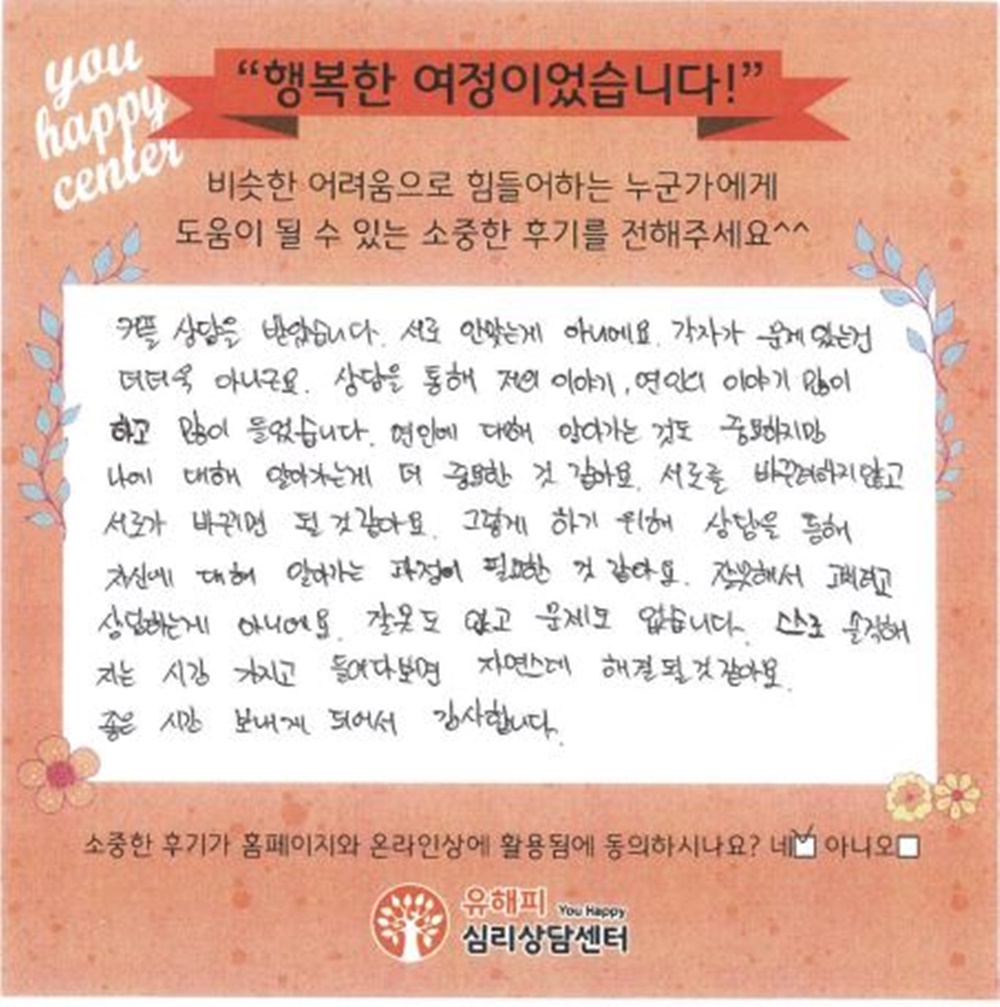 you
happy
center
“행복한 여정이었습니다!”
비슷한 어려움으로 힘들어하는 누군가에게
도움이 될 수 있는 소중한 후기를 전해주세요^^
커플 상담을 받았습니다. 서로 안맞는게 아니에요. 각자가 문제 있는건
더더욱 아니구요. 상담을 통해 저의 이야기, 연인의 이야기 많이
하고 많이 들었습니다. 연인에 대해 알아가는 것도 중요하지만
나에 대해 알아가는게 더 중요한 것 같아요. 서로를 바꾸려하지않고
서로가 바뀌면 될 것 같아요. 그렇게 하기 위해 상담을 통해
자신에 대해 알아가는 과정이 필요한 것 같아요. 잘못해서 고치려고
상담하는게 아니에요. 잘못도 없고 문제도 없습니다. 스스로 솔직해
지는 시간 가지고 들여다보면 자연스레 해결 될 것 같아요.
좋은 시간 보내게 되어서 감사합니다.
소중한 후기가 홈페이지와 온라인상에 활용됨에 동의하시나요? 네 아니오
유해피 You Happy
심리상담센터